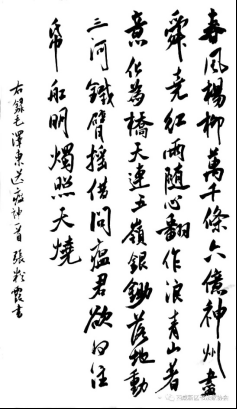 春風楊柳萬千條六億神州盡
舜堯紅雨隨心翻作浪青山著
意化為橋天連五嶺銀鋤落地動
三河鐵臂搖借問瘟君欲何往
帋船明燭照天燒
右錄毛澤東送瘟神一首 張霞書